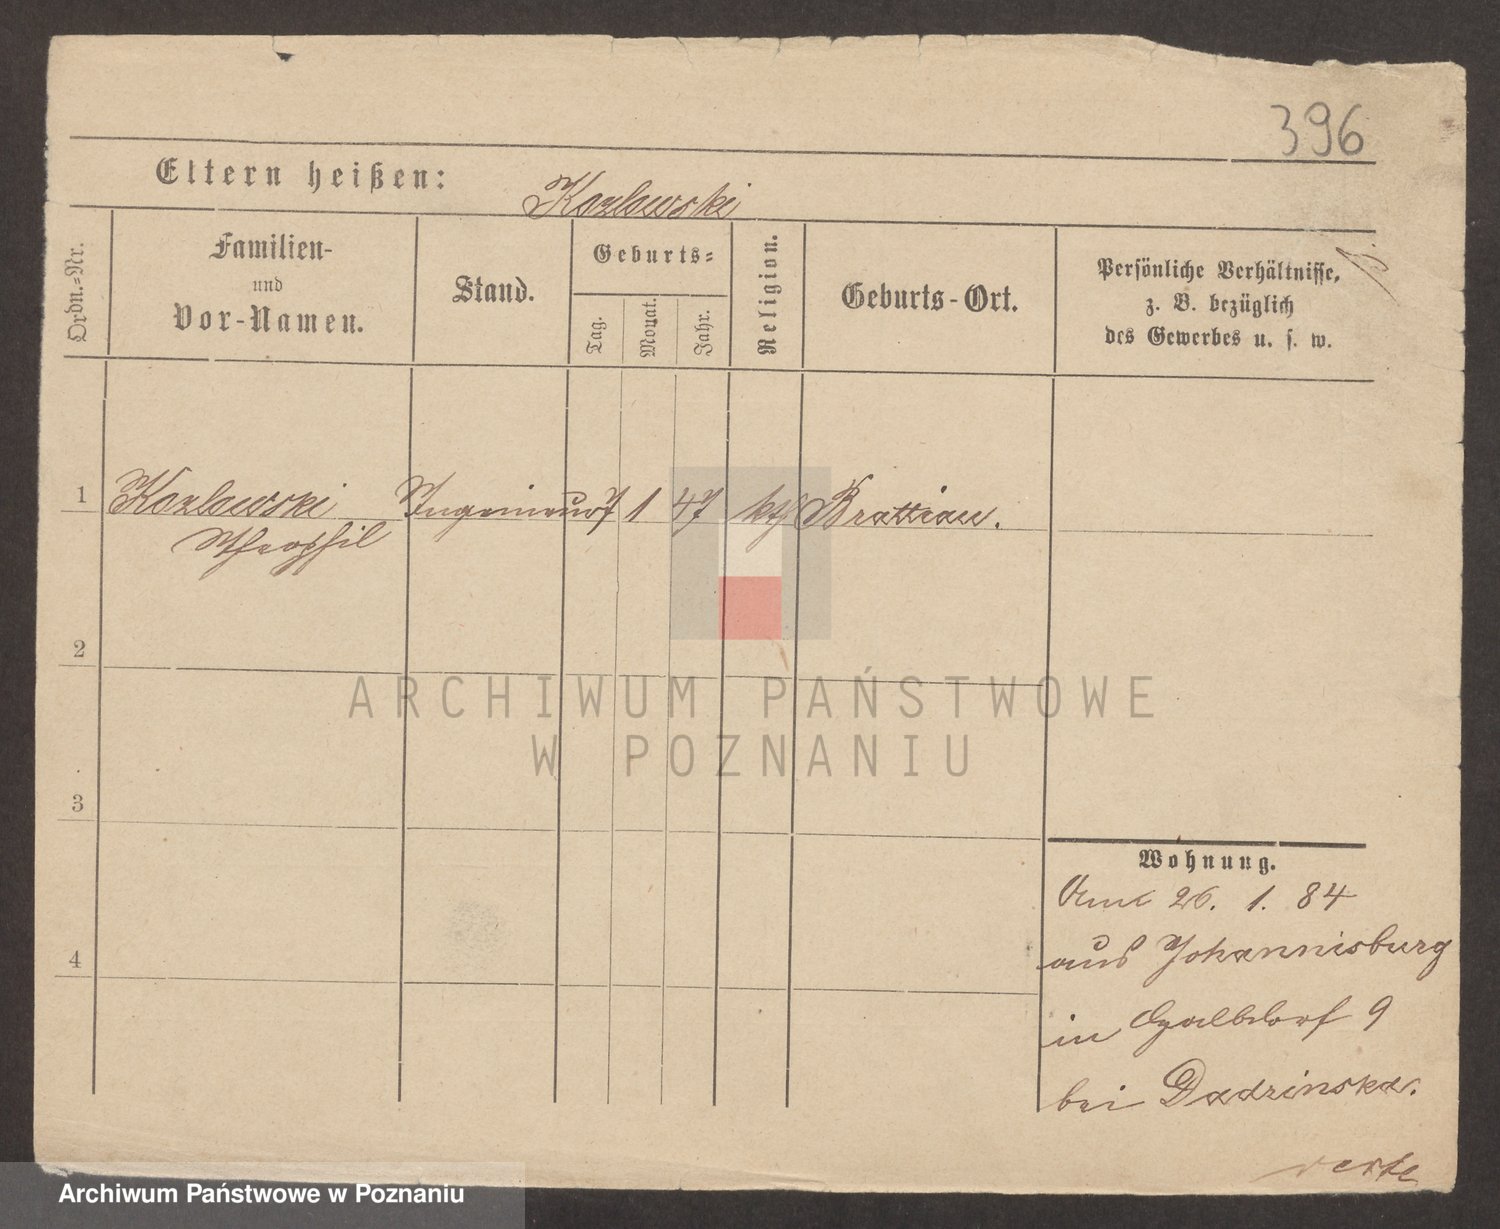 396
Eltern heißen: Kozlowski
Ordn.=Nr.
Familien-
und
Vor-Namen.
Stand.
Geburts=
Tag.
Monat.
Jahr.
Religion.
Geburts-Ort.
Persönliche Verhältnisse,
z. B. bezüglich
des Gewerbes u. s. w.
1 Kozlowski Ingenieur 7 1 47 kth Brattian.
Theophil
2
3
4
Wohnung.
26. 1. 84
aus Johannisburg
in 9
bei Dadzinska.
verte
ARCHIWUM PAŃSTWOWE
W POZNANIU
Archiwum Państwowe w Poznaniu